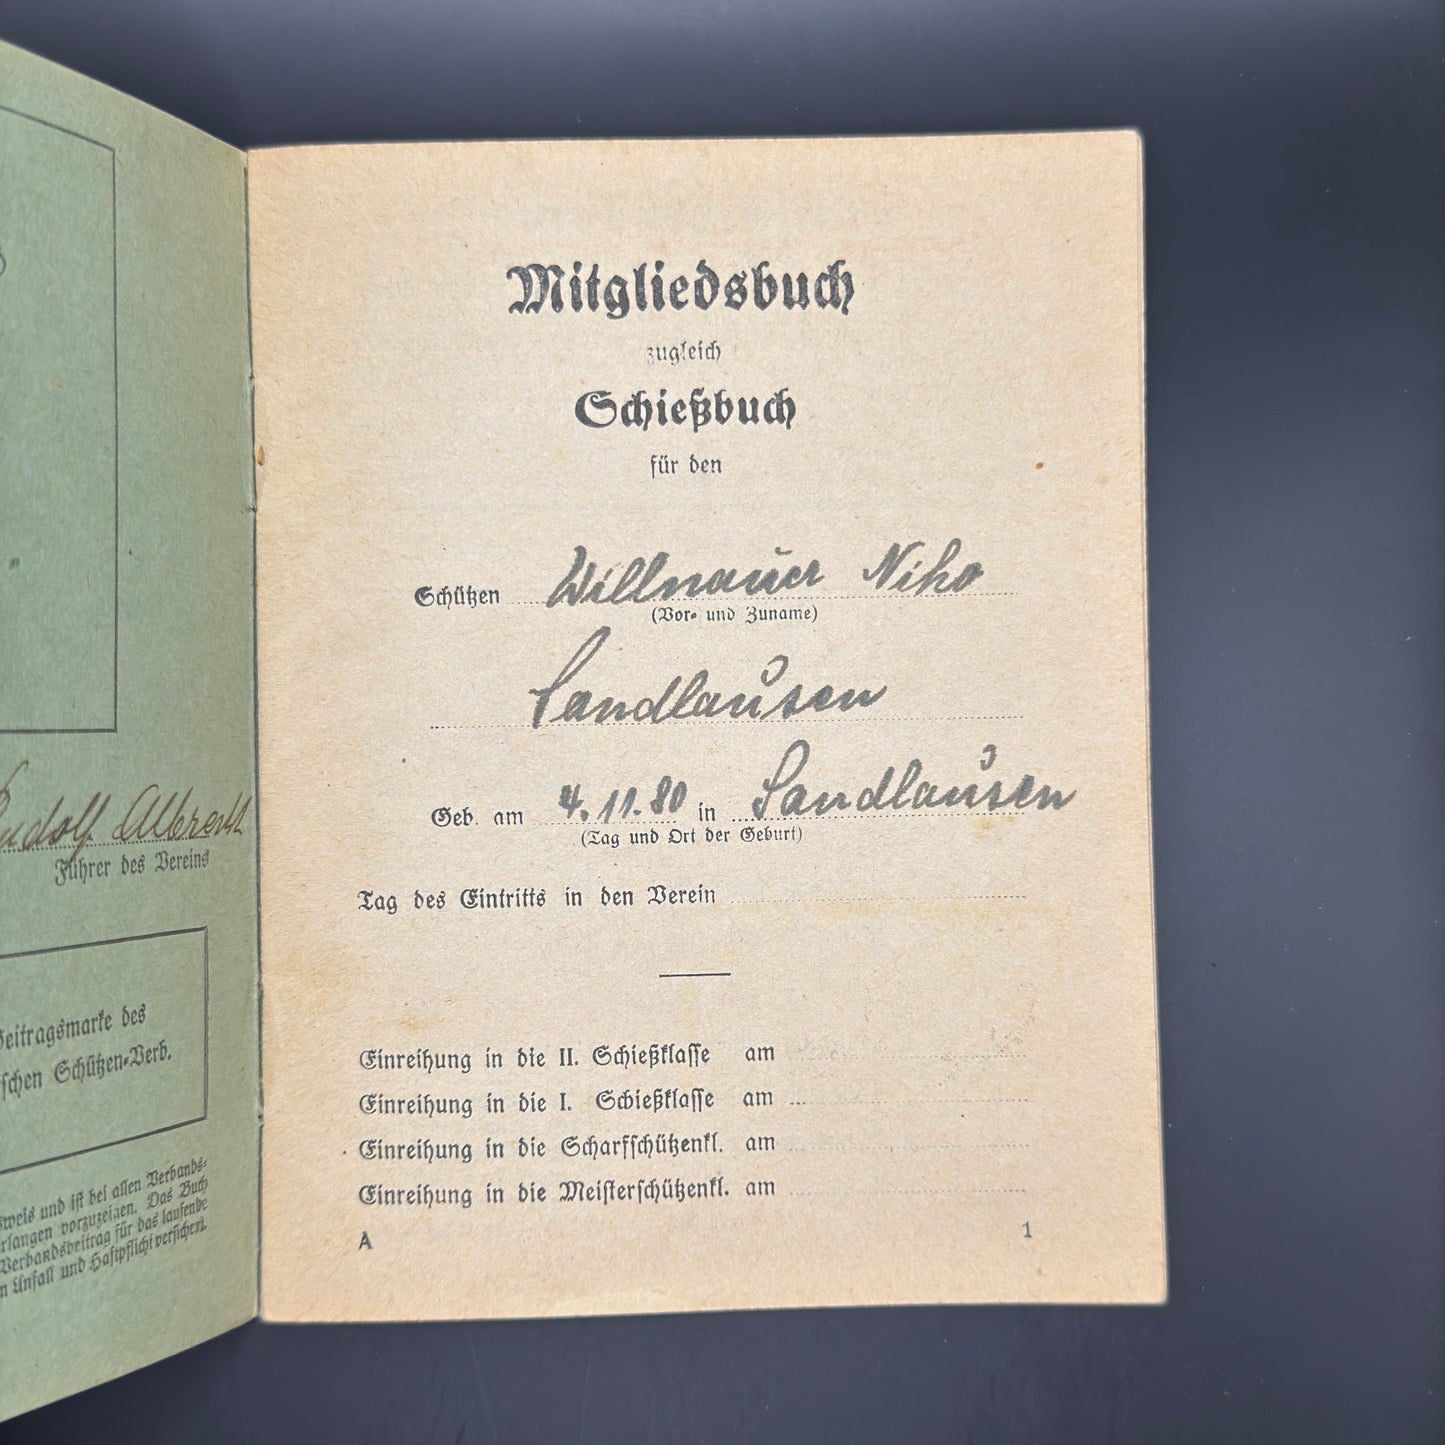 Rudolf Albrecht
Führer des Vereins
Beitragsmarke des
schen Schützen-Verb.
sweis und ist bei allen Verbands-
rlangen vorzuzeigen. Das Buch
Verbandsbeitrag für das laufende
n Unfall und Haftpflicht versichert.
Mitgliedsbuch
zugleich
Schießbuch
für den
Schützen Willnauer Niko
(Vor- und Zuname)
Sandhausen
Geb. am 4.11.80 in Sandhausen
(Tag und Ort der Geburt)
Tag des Eintritts in den Verein
Einreihung in die II. Schießklasse am
Einreihung in die I. Schießklasse am
Einreihung in die Scharfschützenkl. am
Einreihung in die Meisterschützenkl. am
A 1